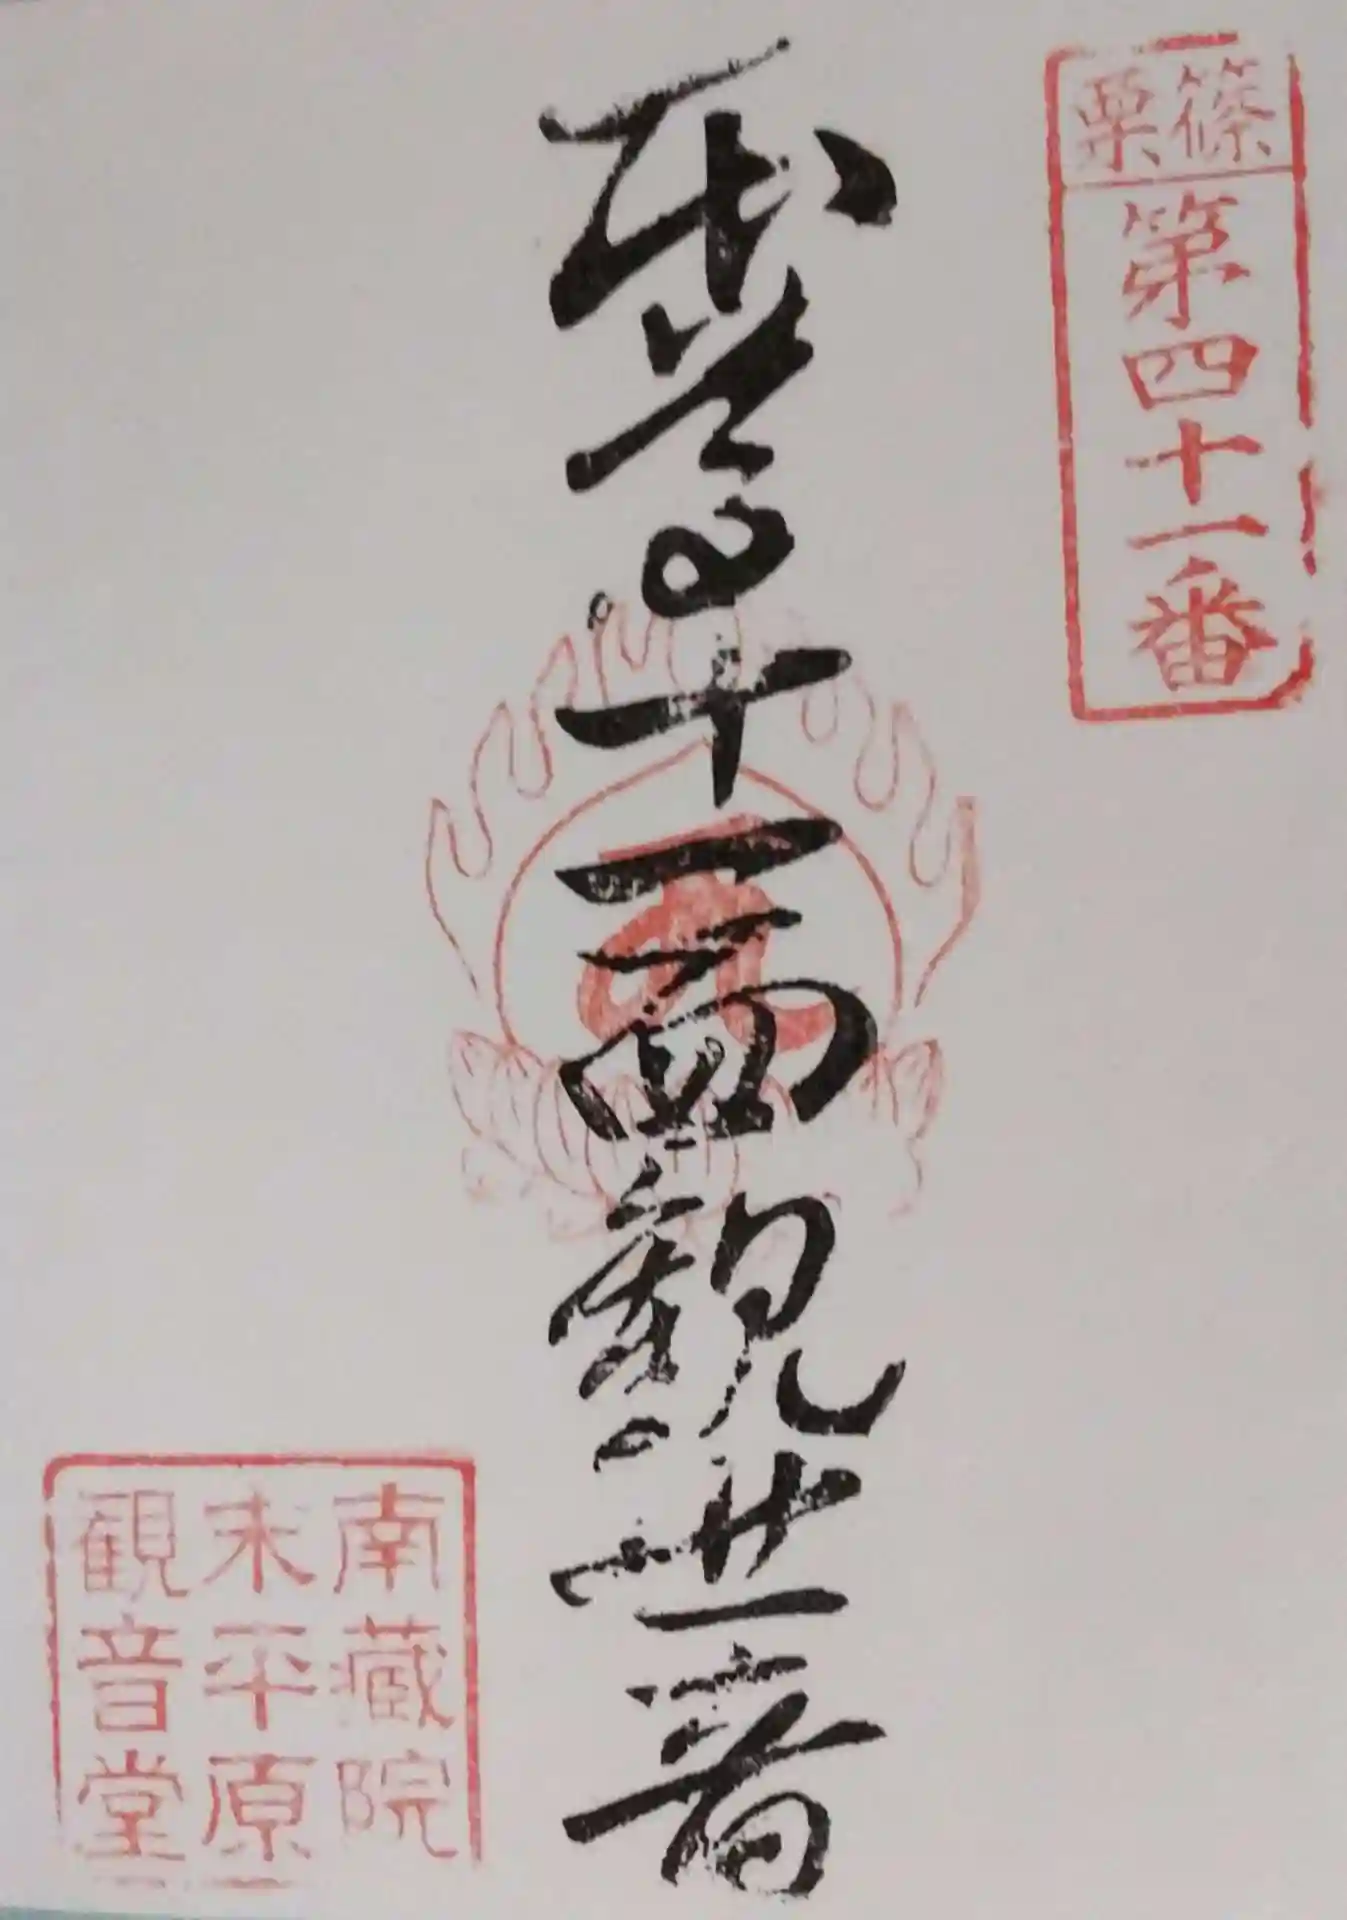 篠栗
第四十一番
本尊十一面観世音
南蔵院
末平原
観音堂